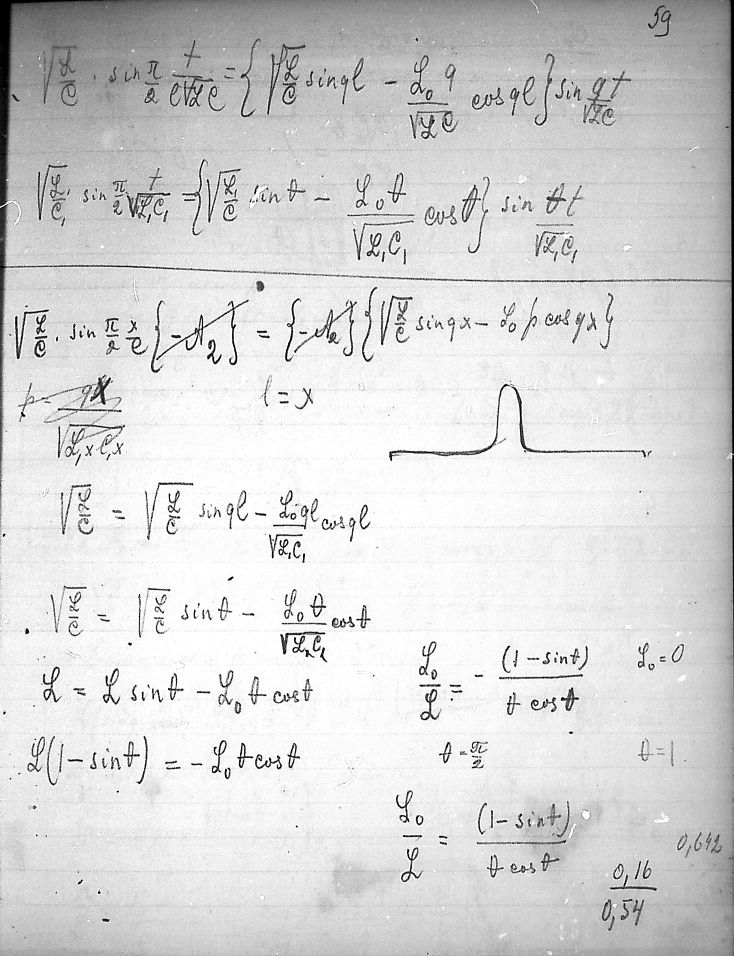 59
√(ℒ/C) · sin π/2 t/(ℓ√ℒC) = {√(ℒ/C) sin qℓ − ℒ₀q/√ℒC cos qℓ} sin qt/√ℒC
√(ℒ₁/C₁) sin π/2 t/√ℒ₁C₁ = {√(ℒ₁/C) sin θ − ℒ₀θ/√ℒ₁C₁ cos θ} sin θt/√ℒ₁C₁
√(ℒ/C) · sin π/2 x/ℓ {−A₂} = {−A₂}{√(ℒ/C) sin qx − ℒ₀ p cos qx}
p = qx/√ℒ₁xC₁x
ℓ = x
√(ℒ/C) = √(ℒ/C) sin qℓ − ℒ₀qℓ/√ℒ₁C₁ cos qℓ
√(ℒ/C) = √(ℒ/C) sin θ − ℒ₀θ/√ℒC cos θ
ℒ = ℒ sin θ − ℒ₀ θ cos θ
ℒ(1 − sin θ) = − ℒ₀ θ cos θ
ℒ₀/ℒ = − (1 − sin θ)/(θ cos θ)
ℒ₀ = 0
θ = π/2
θ = 1
ℒ₀/ℒ = (1 − sin θ)/(θ cos θ)
0,642
0,16
0,54